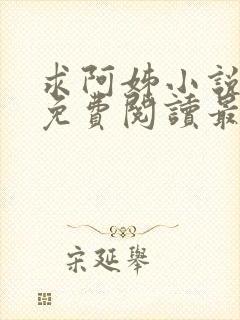 求阿姊小說
免費閱讀最
宋延舉